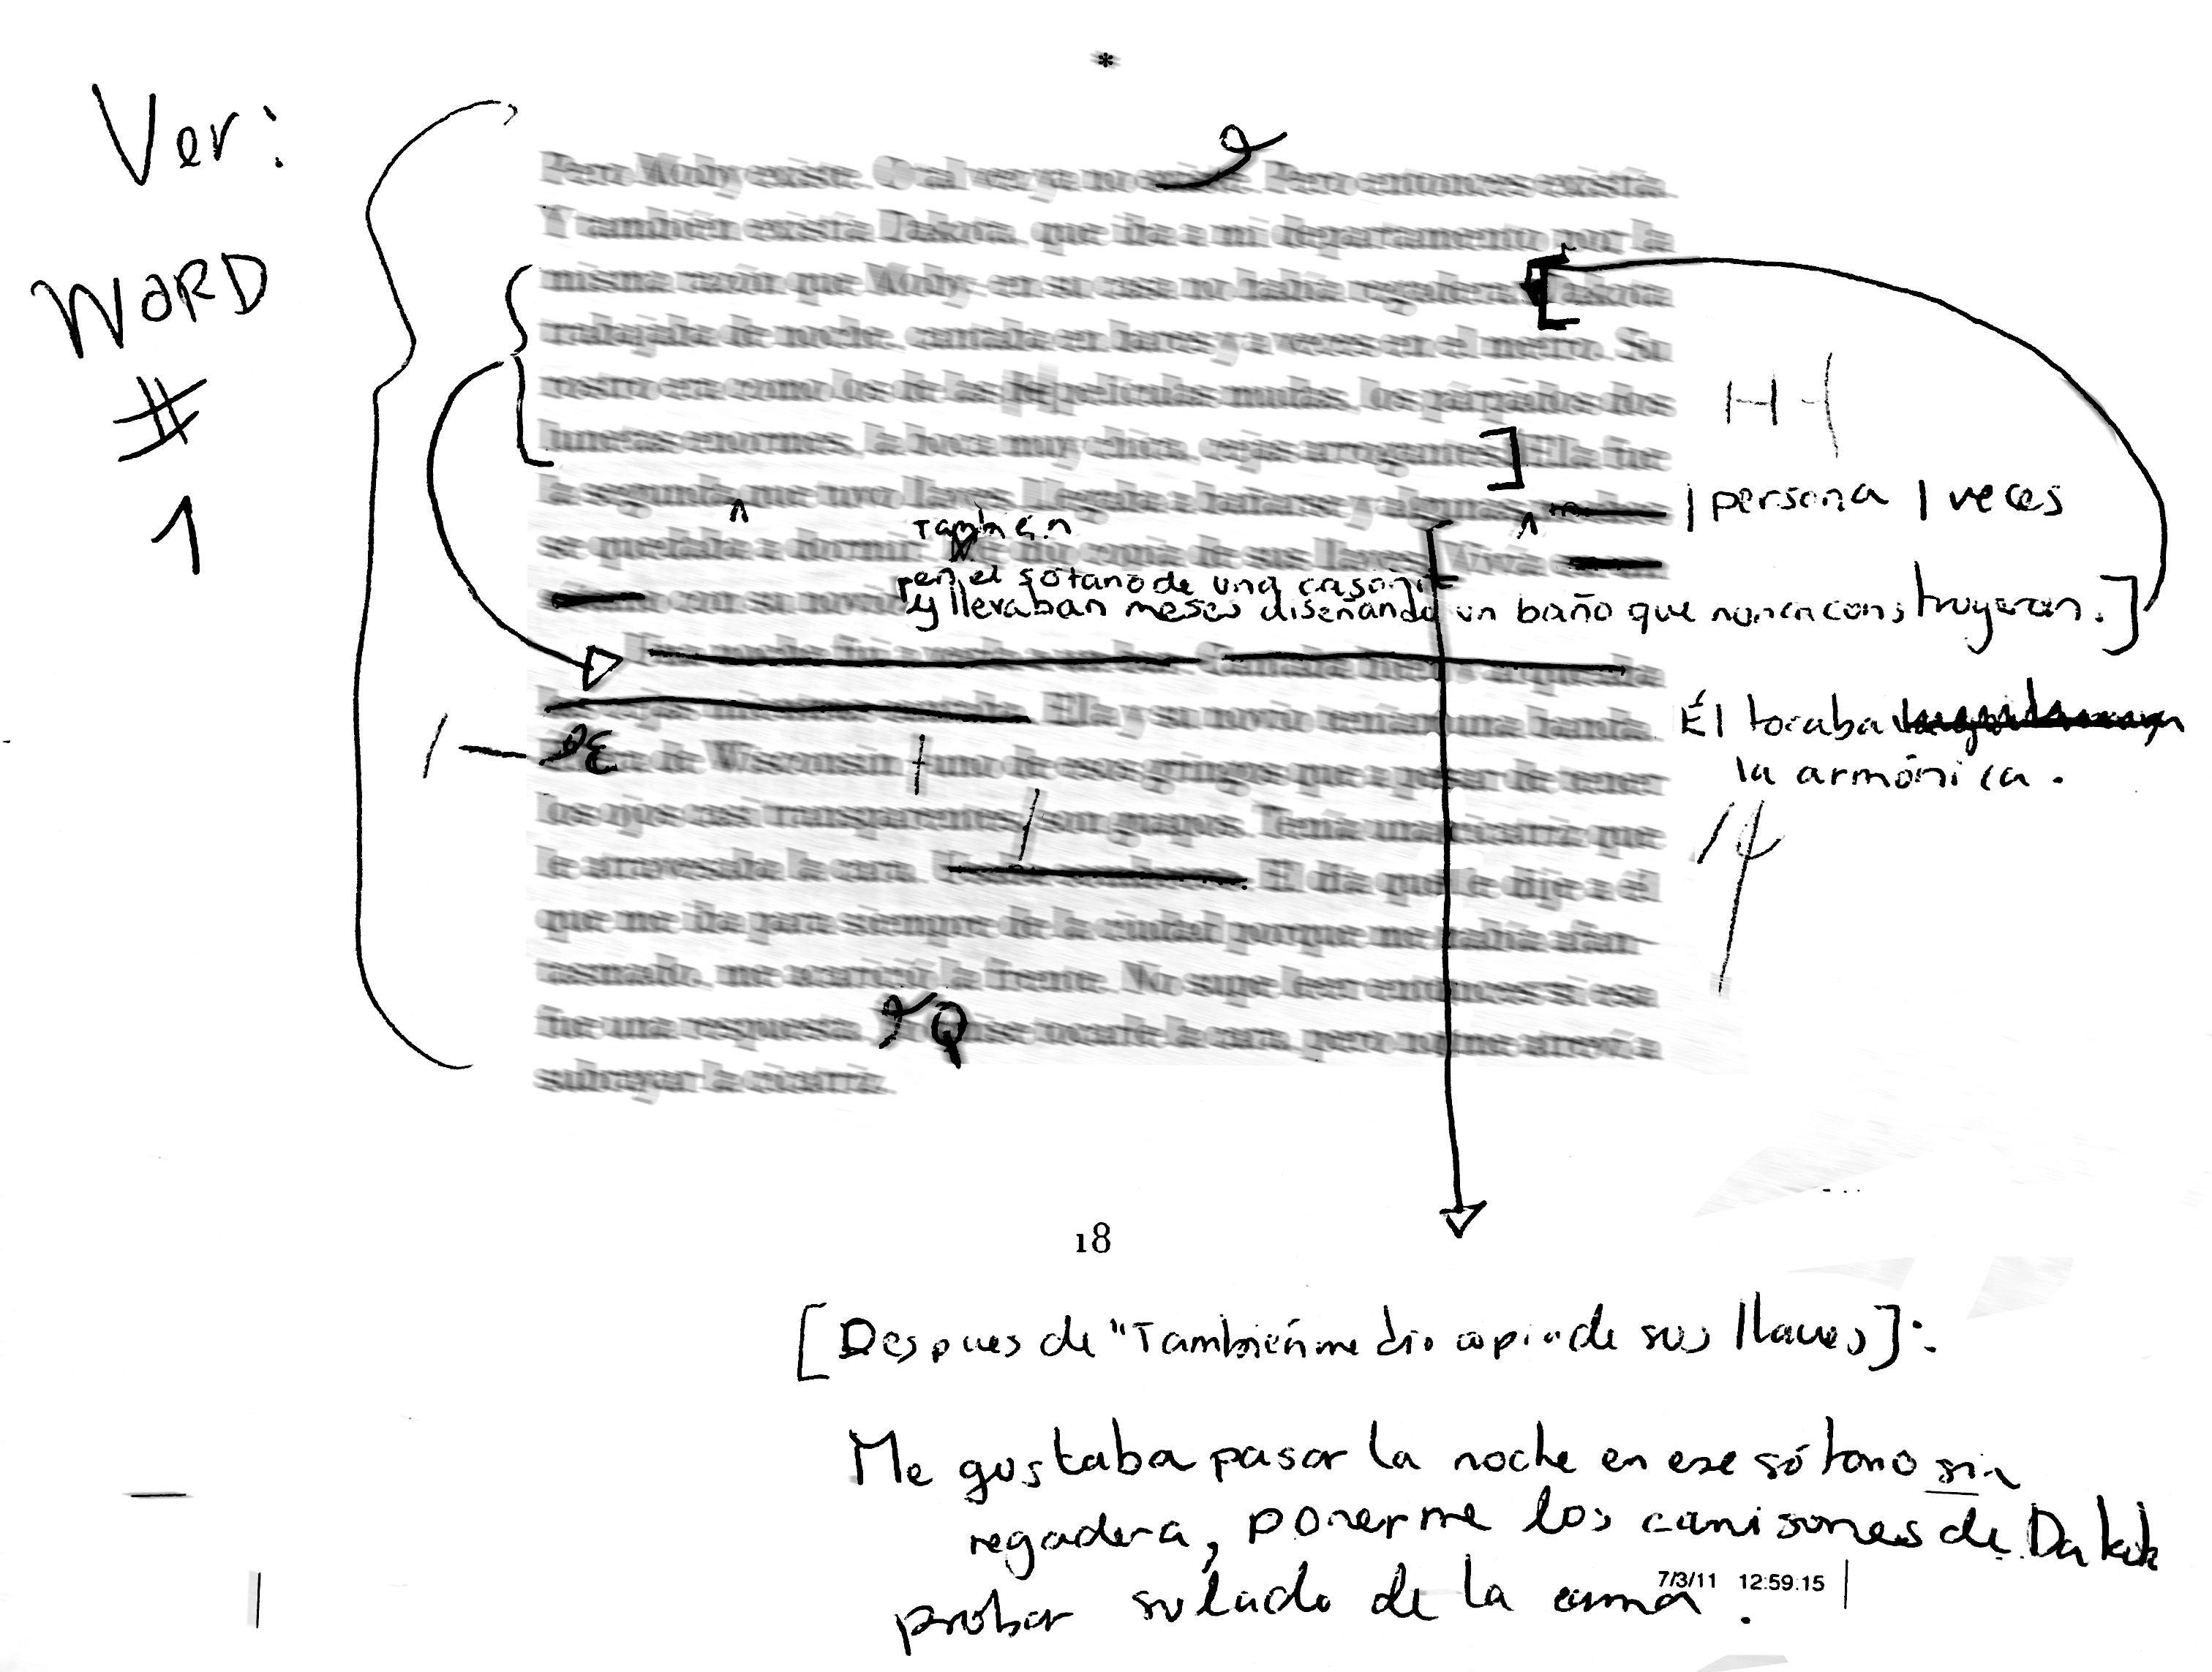 *
Ver:
WORD
#
1
Pero Wody existe. O tal vez ya no existe. Pero entonces existía.
Y también existía Dakota, que iba a mi departamento por la
misma razón que Wody: en su casa no había regadera. Dakota
trabajaba de noche, cantaba en bares y a veces en el metro. Su
rostro era como los de las películas mudas, los párpados dos
lunetas enormes, la boca muy chica, cejas arrogantes. Ella fue
la segunda que tuvo llaves. Llegaba a bañarse y algunas noches
| persona | veces
también
se quedaba a dormir. Me dio copia de sus llaves. Vivía en un
en el sótano de una casona
con su novio
y llevaban meses diseñando un baño que nunca construyeron.]
Una noche fui a verla cantar. Cantaba fuerte y arqueaba
las cejas mientras cantaba. Ella y su novio tenían una banda.
Él tocaba
la armónica.
E
era de Wisconsin, uno de esos gringos que a pesar de tener
los ojos casi transparentes, son guapos. Tenía una cicatriz que
le atravesaba la cara. El día que le dije a él
que me iba para siempre de la ciudad porque me había afan-
tasmado, me acarició la frente. No supe leer entonces si esa
fue una respuesta. Quise tocarle la cara, pero no me atreví a
subrayar la cicatriz.
18
[Despues de "También me dio copia de sus llaves]:
Me gustaba pasar la noche en ese sótano sin
regadera, ponerme los camisones de Dakota
probar su lado de la cama.
7/3/11 12:59:15